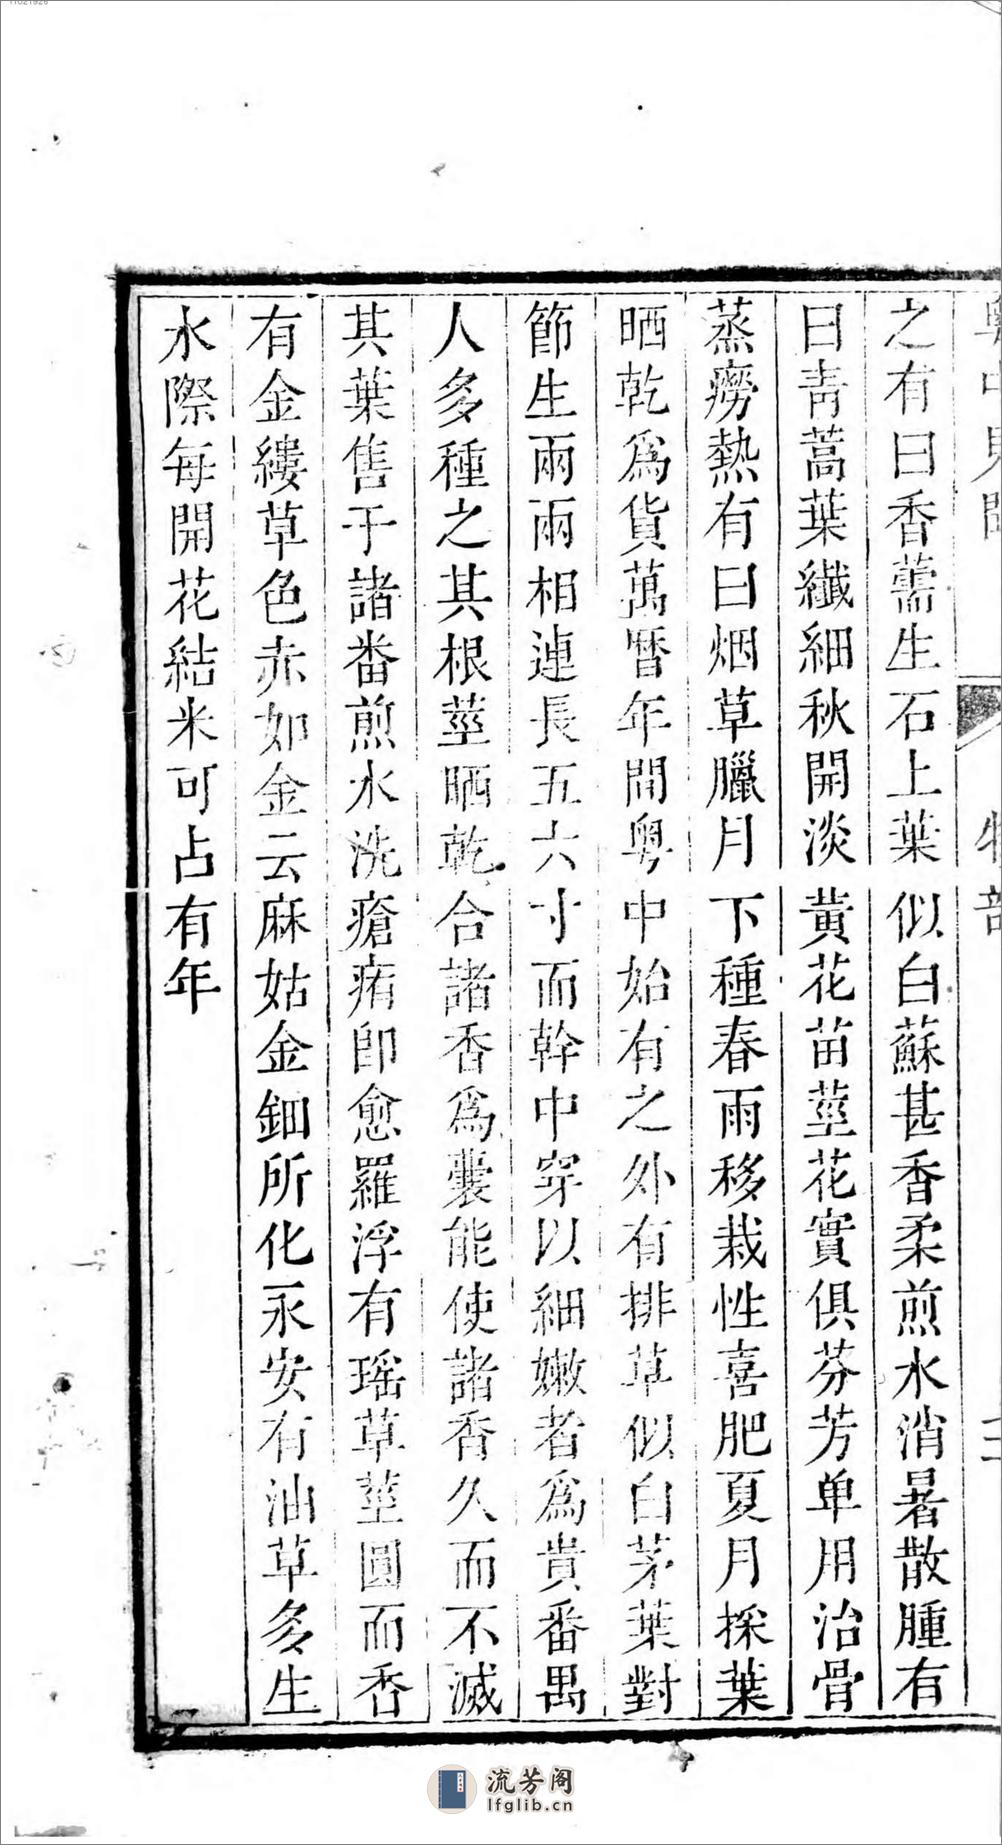 之有曰香薷生石上葉似白蘇甚香柔煎水消暑散腫有
曰青蒿葉纖細秋開淡黃花苗莖花實俱芬芳单用治骨
蒸癆熱有曰烟草臘月下種春雨移栽性喜肥夏月採葉
晒乾爲貨萬曆年間粤中始有之外有排草似白茅葉對
節生兩兩相連長五六寸而幹中穿以細嫩者爲貴番禺
人多種之其根莖晒乾合諸香爲囊能使諸香久而不滅
其葉售于諸番煎水洗瘡痏即愈羅浮有瑶草莖圓而香
有金縷草色赤如金云麻姑金鈿所化永安有油草多生
水際每開花結米可占有年
流芳阁
lfglib.cn